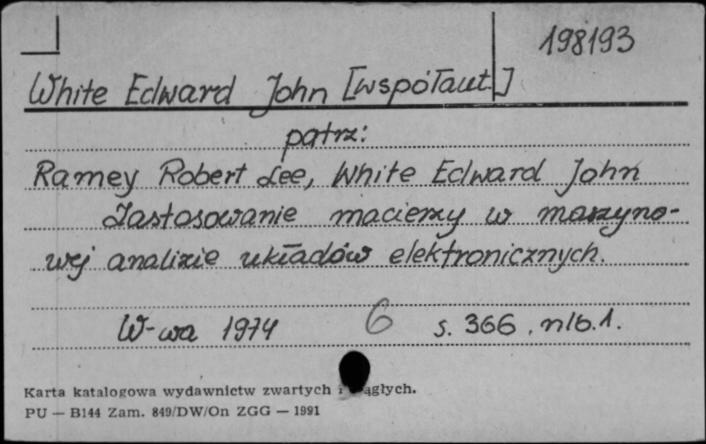 198193
White Edward John [współaut.]
patrz:
Ramey Robert Lee, White Edward John
Zastosowanie macierzy w maszyno-
wej analizie układów elektronicznych.
W-wa 1974 6 s. 366, nlb.1.
Karta katalogowa wydawnictw zwartych i
PU — B144 Zam. 849/DW/On ZGG — 1991